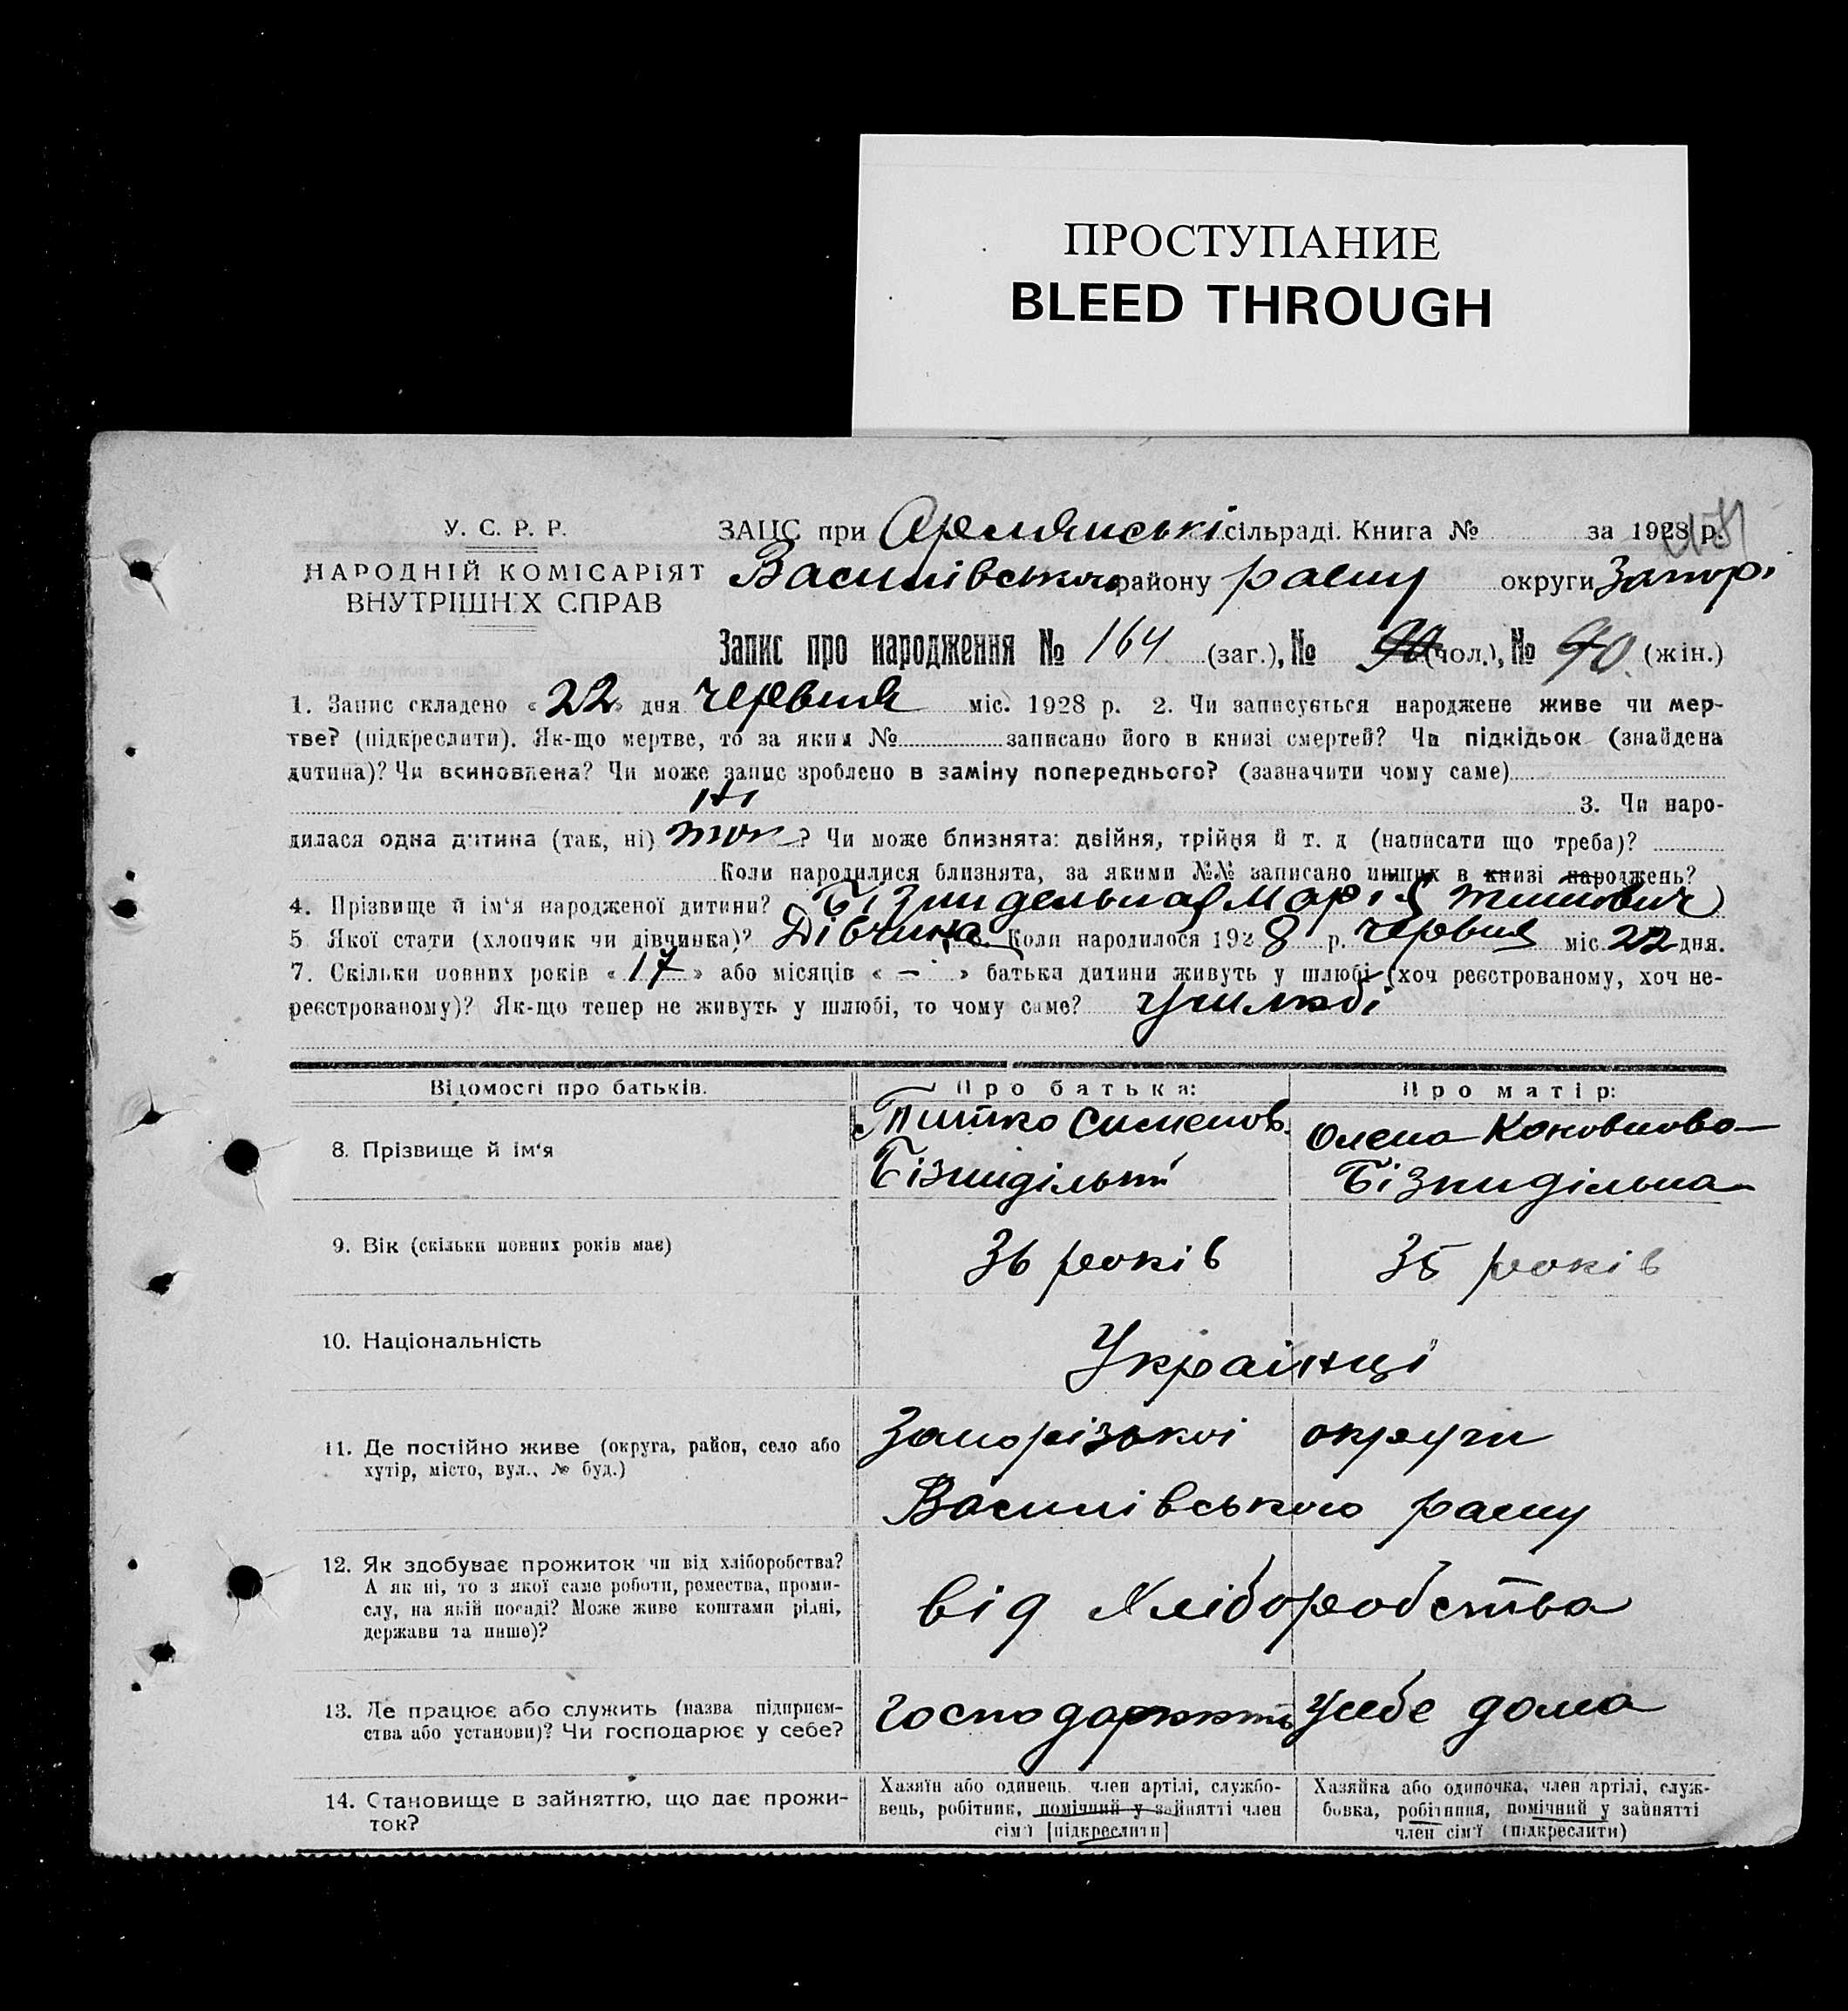 ПРОСТУПАНИЕ
BLEED THROUGH
У. С. Р. Р.
НАРОДНІЙ КОМІСАРІЯТ
ВНУТРІШНІХ СПРАВ
ЗАЦС при Армянські сільраді. Книга № за 1928 р.
Василівського району раену округи Запор.
Запис про народження № 164 (заг.), № (чол.), № 90. (жін.)
1. Запис складено «22» дня червня міс. 1928 р. 2. Чи записується народжене живе чи мер-
тве? (підкреслити). Як-що мертве, то за яким № записано його в книзі смертей? Чи підкідьок (знайдена
дитина)? Чи всиновлена? Чи може запис зроблено в заміну попереднього? (зазначити чому саме)
ні 3. Чи наро-
дилася одна дитина (так, ні) так? Чи може близнята: двійня, трійня й т. д (написати що треба)?
Коли народилися близнята, за якими №№ записано инших в книзі народжень?
4. Прізвище й ім‘я народженої дитини? Марія
5 Якої стати (хлопчик чи дівчинка)? Дівчина. Коли народилося 1928 р. червня міс. 22 дня.
7. Скільки повних років «17» або місяців « — » батьки дитини живуть у шлюбі (хоч реєстрованому, хоч не-
реєстрованому)? Як-що тепер не живуть у шлюбі, то чому саме? у шлюбі
Відомості про батьків. Про батька: Про матір:
8. Прізвище й ім‘я
Титко Сименов. Олена
Бізнидільна
9. Вік (скільки повних років має) 36 років 35 років
10. Національність Українці
11. Де постійно живе (округа, район, село або
хутір, місто, вул., № буд.)
Запорізької округи
Василівського раену
12. Як здобуває прожиток чи від хліборобства?
А як ні, то з якої саме роботи, ремества, проми-
слу, на якій посаді? Може живе коштами рідні,
держави та инше)?
від хліборобства
13. Де працює або служить (назва підприєм-
ства або установи)? Чи господарює у себе?
господарюють у себе дома
14. Становище в зайняттю, що дає прожи-
ток?
Хазяїн або одинець, член артілі, службо-
вець, робітник, помічний у зайнятті член
сім‘ї [підкреслити]
Хазяйка або одиночка, член артілі, служ-
бовка, робітниця, помічний у зайнятті
член сім‘ї (підкреслити)